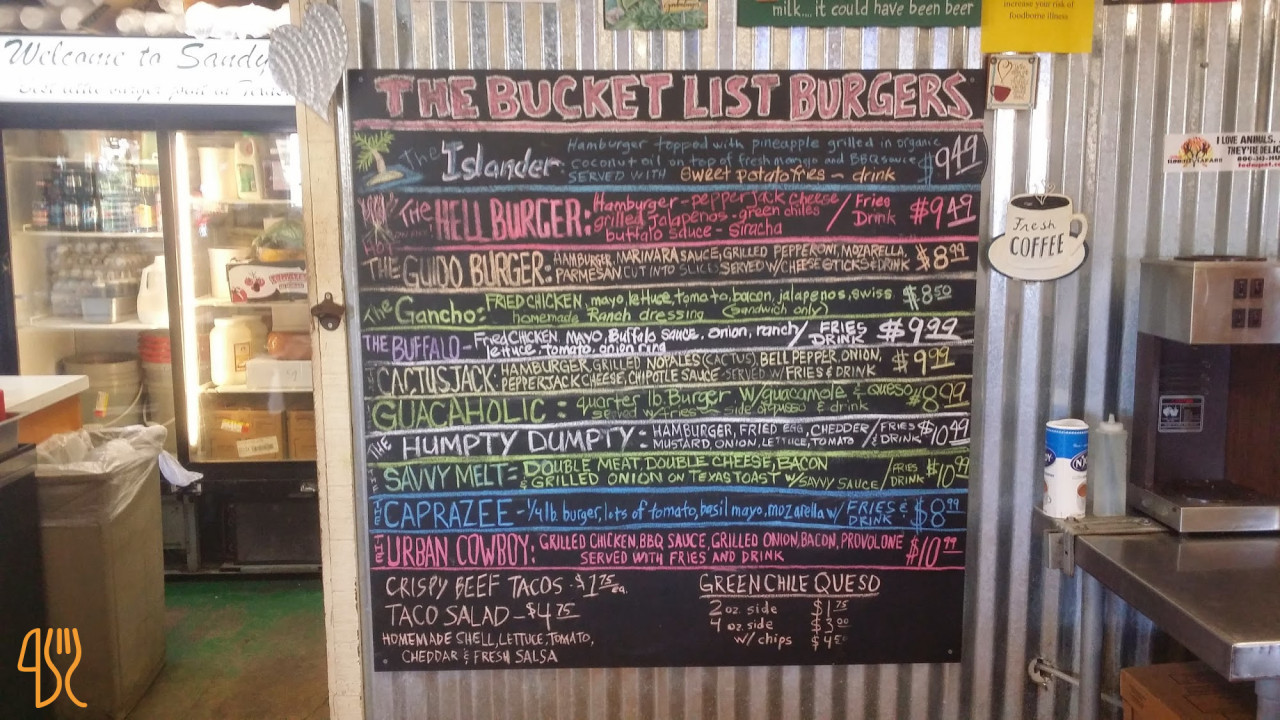 milk.... it could have been beer
increase your risk of
foodborne illness
Welcome to Sandy
THE BUCKET LIST BURGERS
The Islander Hamburger topped with pineapple grilled in organic
coconut oil on top of fresh mango and BBQ sauce $9.49
SERVED WITH Sweet potato fries ~ drink
The HELL BURGER: Hamburger - pepperjack cheese / Fries $9.49
grilled jalapenos - green chiles Drink
buffalo sauce - siracha
HOT
THE GUIDO BURGER: HAMBURGER, MARINARA SAUCE, GRILLED PEPPERONI, MOZARELLA, $8.99
PARMESAN CUT INTO SLICES SERVED W/ CHEESE STICKS & DRINK
The Gancho: FRIED CHICKEN, mayo, lettuce, tomato, bacon, jalapenos, swiss $8.50
homemade Ranch dressing (Sandwich only)
THE BUFFALO - Fried CHICKEN, MAYO, Buffalo sauce, onion, ranch / FRIES $9.99
lettuce, tomato, onion ring DRINK
THE CACTUS JACK: HAMBURGER, GRILLED NOPALES (CACTUS), BELL PEPPER, ONION, $9.99
PEPPERJACK CHEESE, CHIPOTLE SAUCE - SERVED W/ FRIES & DRINK
GUACAHOLIC: quarter lb. Burger W/ guacamole & QUESO $8.99
served w/ fries ~ side of queso & drink
THE HUMPTY DUMPTY: HAMBURGER, FRIED EGG, CHEDDER / FRIES & $10.99
MUSTARD, ONION, LETTUCE, TOMATO DRINK
THE SAVVY MELT = DOUBLE MEAT, DOUBLE CHEESE, BACON / FRIES $10.99
& GRILLED ONION ON TEXAS TOAST W/ SAVVY SAUCE DRINK
THE CAPRAZEE - 1/4 lb. burger, lots of tomato, basil mayo, mozarella w/ FRIES & $8.99
DRINK
THE URBAN COWBOY: GRILLED CHICKEN, BBQ SAUCE, GRILLED ONION, BACON, PROVOLONE $10.99
SERVED WITH FRIES AND DRINK
CRISPY BEEF TACOS - $1.75 ea.
TACO SALAD - $4.75
HOMEMADE SHELL, LETTUCE, TOMATO,
CHEDDAR & FRESH SALSA
GREEN CHILE QUESO
2 oz. side $1.75
4 oz. side $3.00
w/ chips $4.50
Fresh
COFFEE
I LOVE ANIMALS,
THEY'RE DELIC